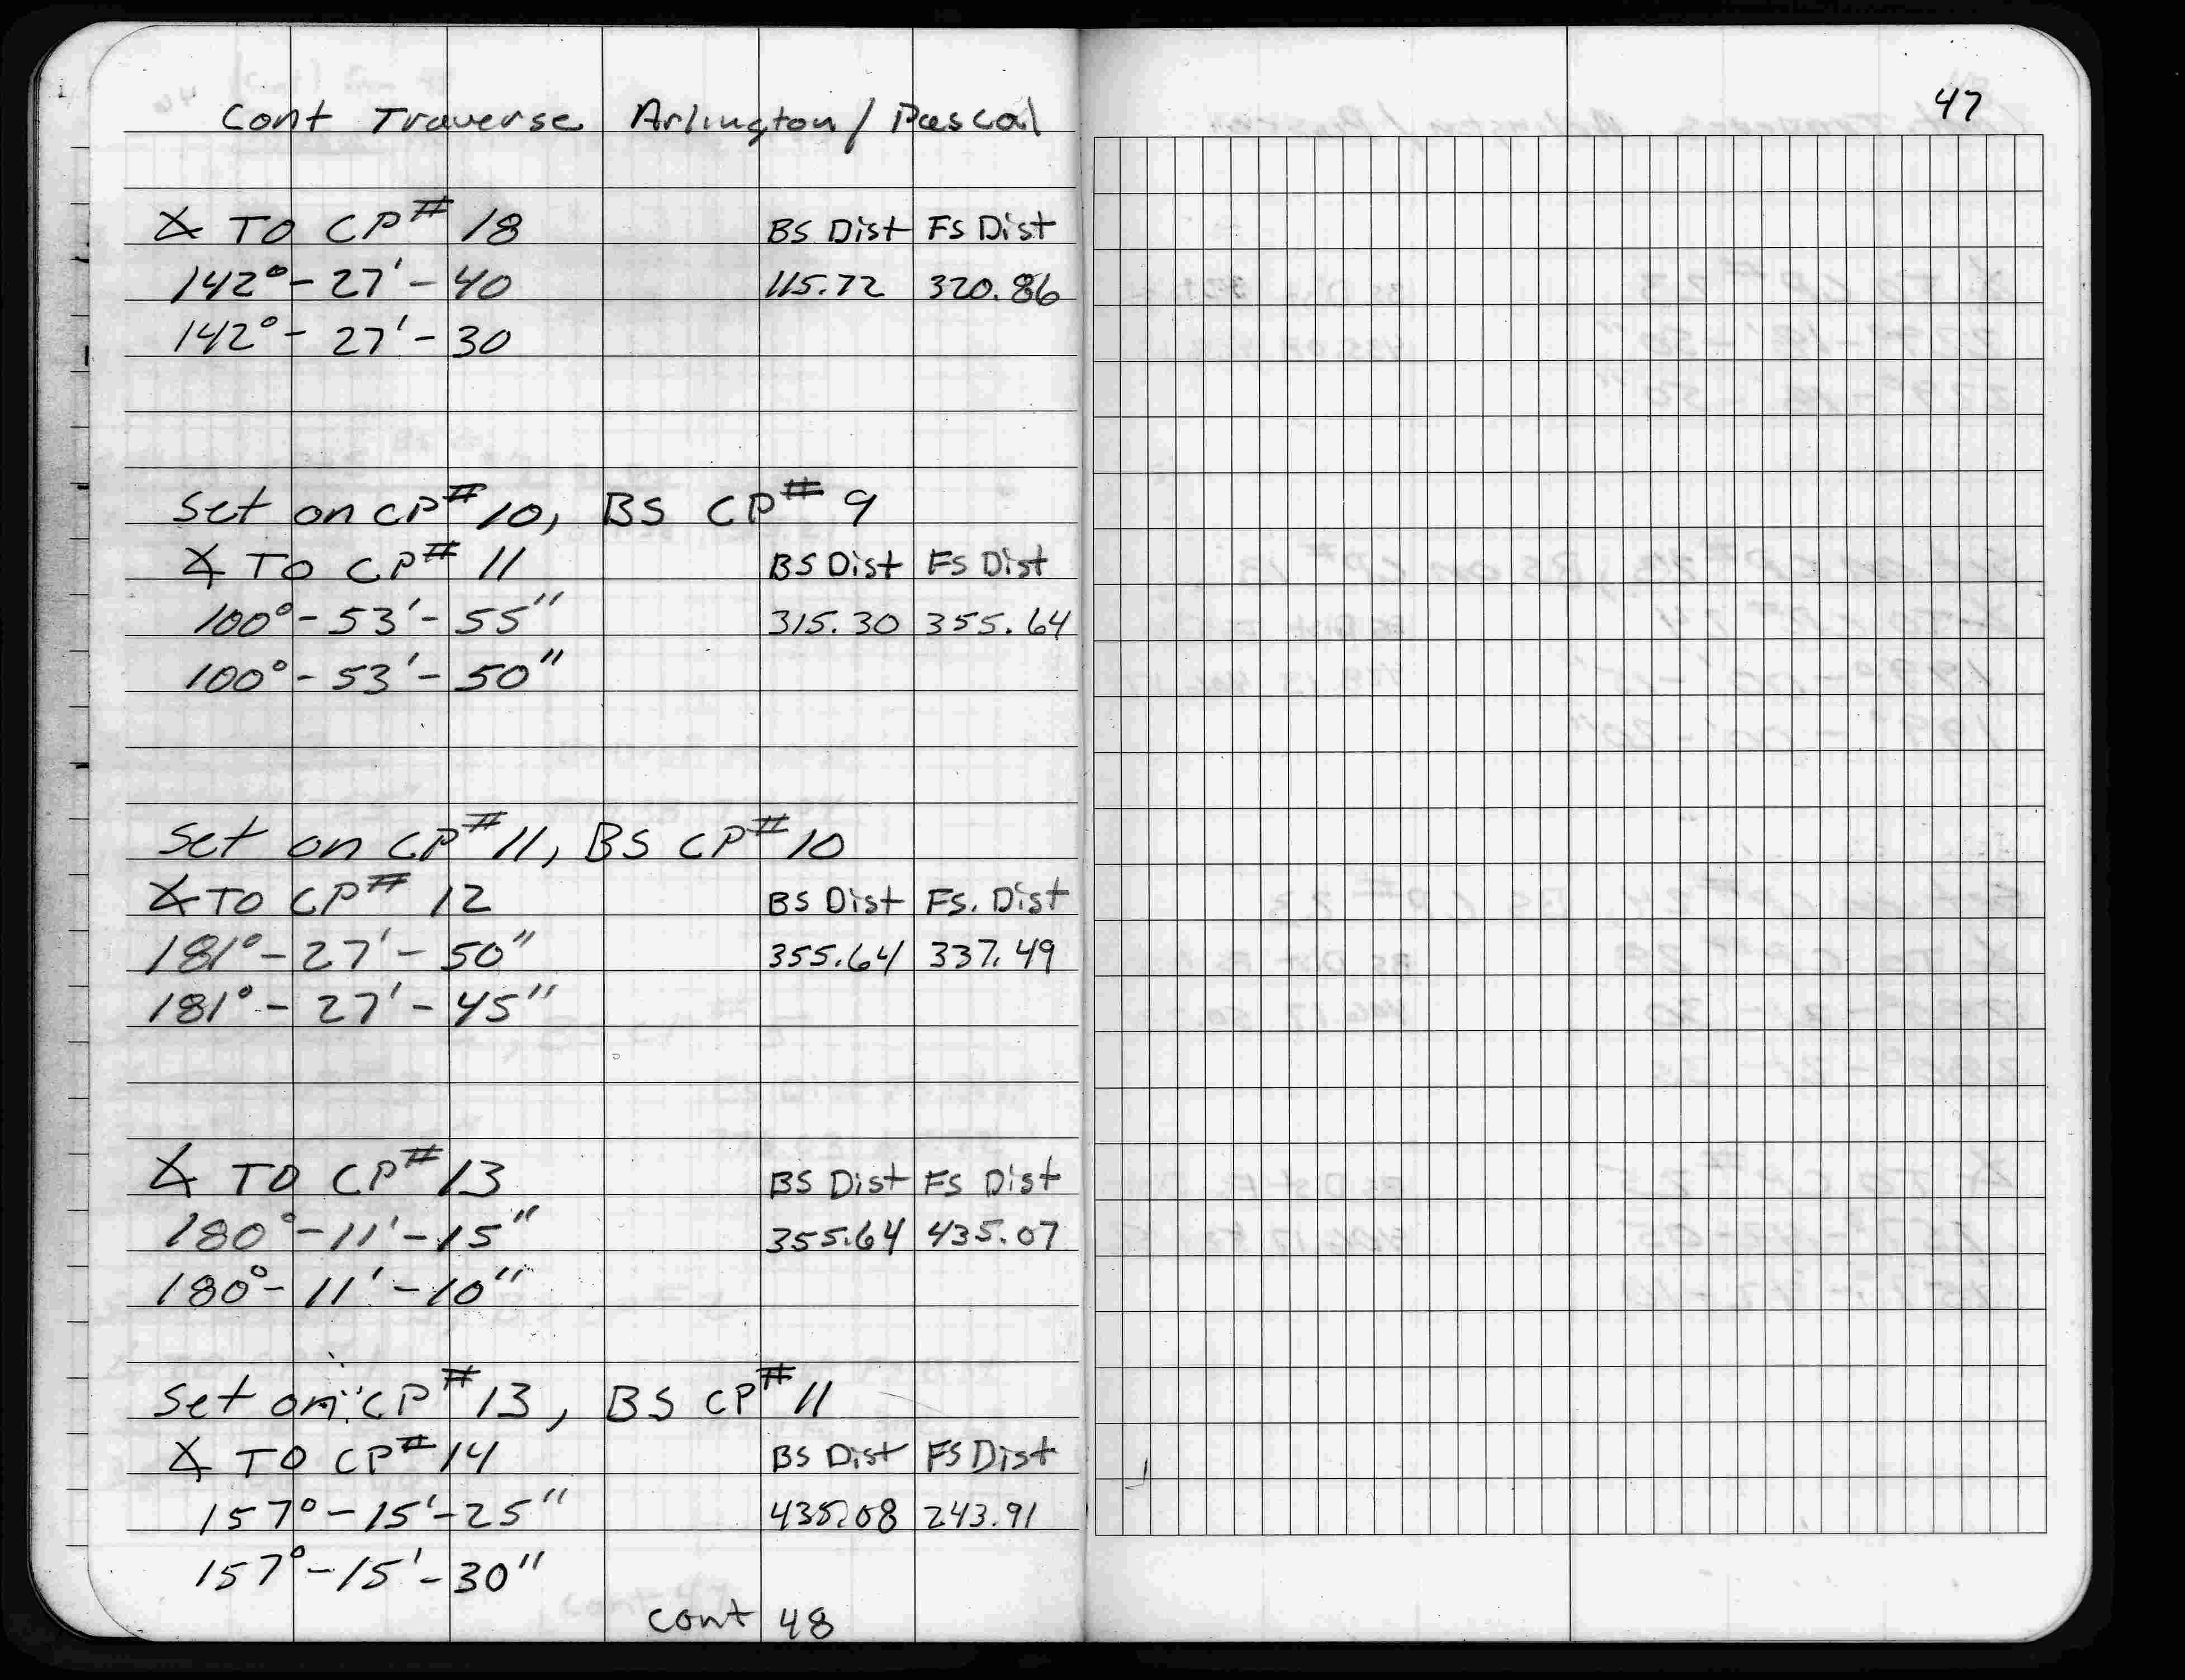 47
Cont Traverse Arlington / Pascal
∡ TO CP# 18 BS Dist FS Dist
142° - 27' - 40 115.72 320.86
142° - 27' - 30
Set on CP# 10, BS CP# 9
∡ TO CP# 11 BS Dist FS Dist
100° - 53' - 55" 315.30 355.64
100° - 53' - 50"
Set on CP# 11, BS CP# 10
∡ TO CP# 12 BS Dist FS. Dist
181° - 27' - 50" 355.64 337.49
181° - 27' - 45"
∡ TO CP# 13 BS Dist FS Dist
180° - 11' - 15" 355.64 435.07
180° - 11' - 10"
Set on CP# 13, BS CP# 11
∡ TO CP# 14 BS Dist FS Dist
157° - 15' - 25" 435.08 243.91
157° - 15' - 30"
cont 48